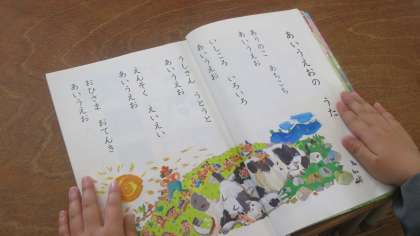 あいうえおの うた
ありのこ あちこち
あいうえお
いしころ いろいろ
あいうえお
うしさん うとうと
あいうえお
えんそく えいえい
あいうえお
おひさま おてんき
あいうえお